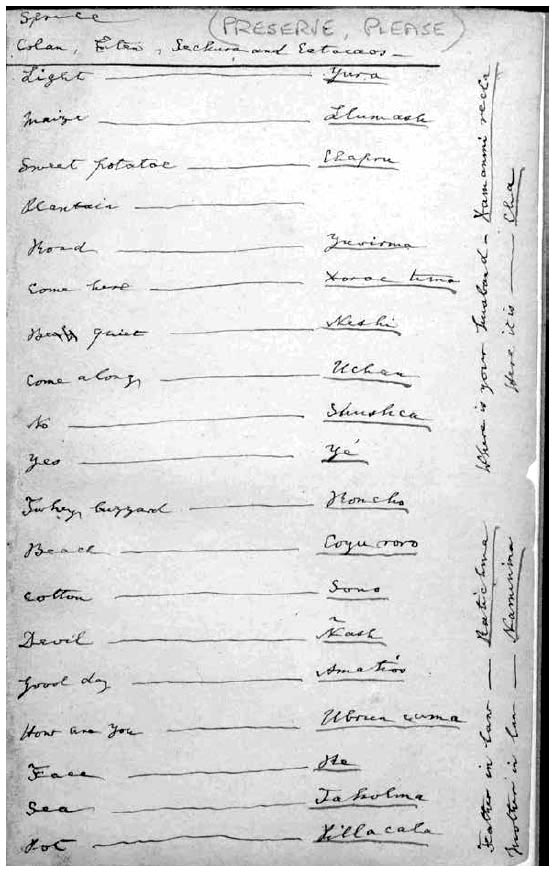 Spruce
(PRESERVE, PLEASE)
Colan, Eten, Sechura, and Catacaos—
Light — Yura
Maize — Llumash
Sweet potatoe — Chapru
Plantain —
Road — Yuvirma
Come here — Xoroc tima
Be quiet — Neshi
Come along — Uchan
No — Shushca
Yes — Yé
Turkey buzzard — Roncho
Beach — Coyu roro
Cotton — Sono
Devil — Ñash
Good day — Amatios
How are you — Ubrun cuma
Face — He
Sea — Taholma
Pot — Killacala
Where is your husband — Xamanmi recla
Here it is — Cha
Father in law — Ratichma
Mother in law — Naminma